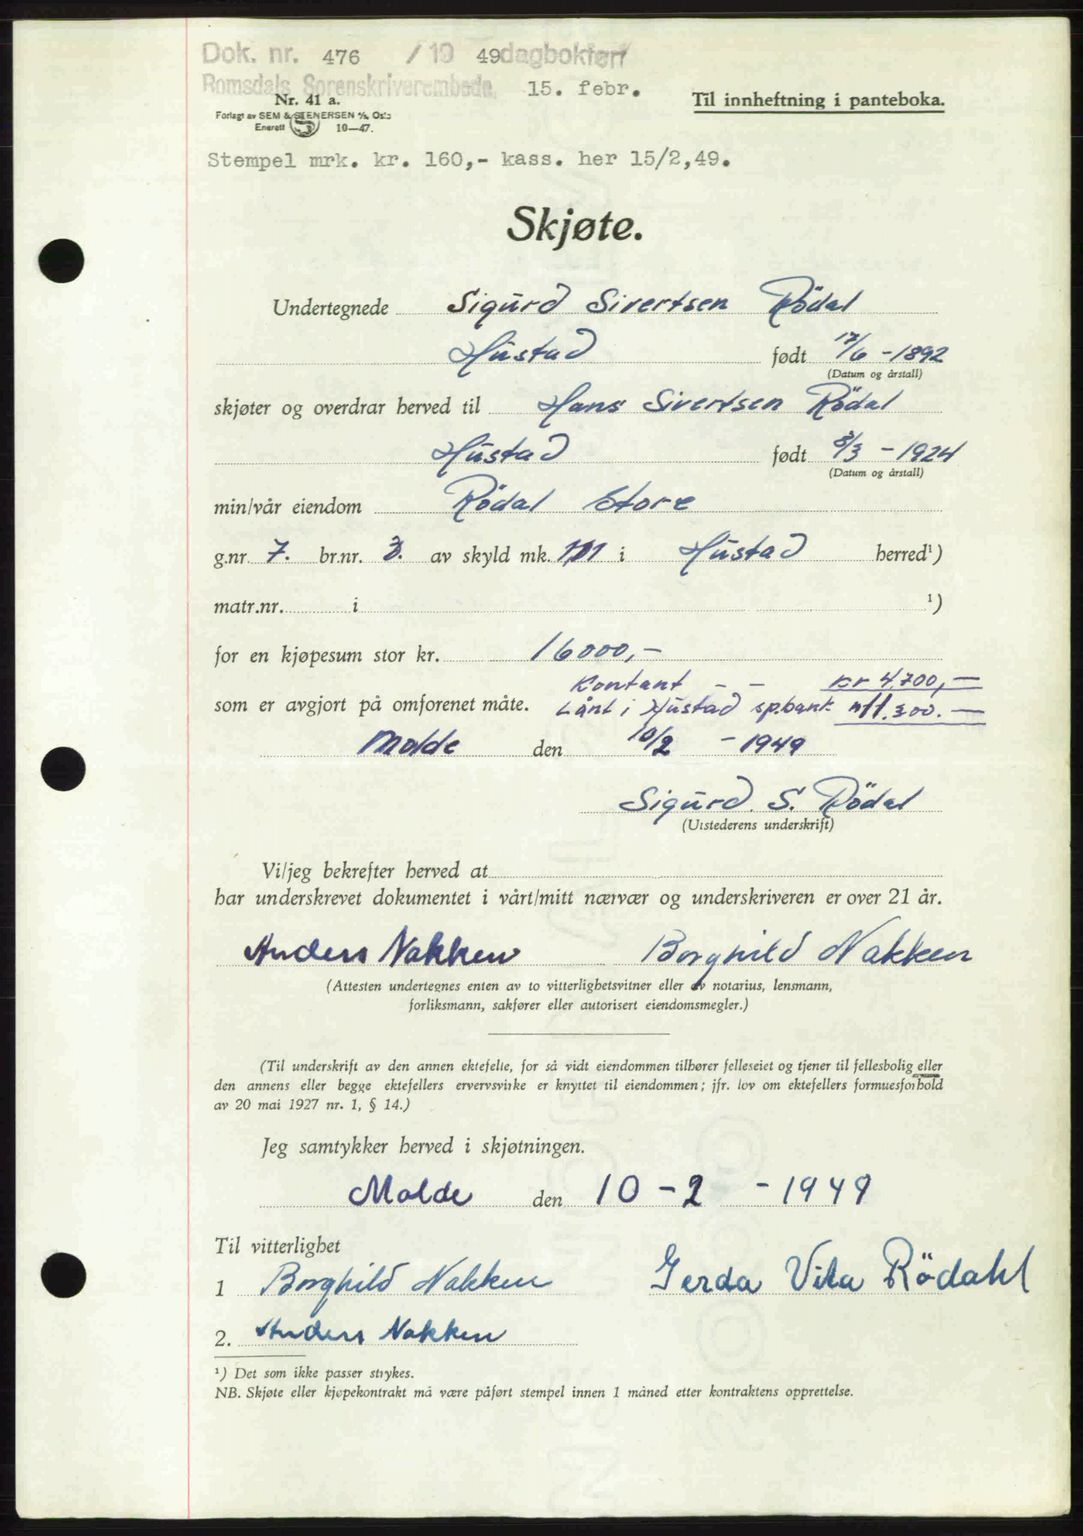 Dok. nr. 476 / 19 49 dagbokført
Romsdals Sorenskriverembede, 15. febr.
Nr. 41 a.
Til innheftning i panteboka.
Forlagt av SEM & STENERSEN A/S, Oslo
Enerett 10—47.
Stempel mrk. kr. 160,- kass. her 15/2,49.
Skjøte.
Undertegnede Sigurd Sivertsen Rödal
Hustad født 17/6 - 1892
(Datum og årstall)
skjøter og overdrar herved til Hans Sivertsen Rödal
Hustad født 8/3 - 1924
(Datum og årstall)
min/vår eiendom Rödal Store
g.nr. 7. br.nr. 3. av skyld mk. i Hustad herred¹)
matr.nr. i ¹)
for en kjøpesum stor kr. 16000,-
Kontant - - kr 4.700,-
som er avgjort på omforenet måte. Lånt i Hustad sp.bank " 11.300.-
Molde den 10/2 - 1949
Sigurd S. Rödal
(Utstederens underskrift)
Vi/jeg bekrefter herved at
har underskrevet dokumentet i vårt/mitt nærvær og underskriveren er over 21 år.
Anders Nakken Borghild Nakken
(Attesten undertegnes enten av to vitterlighetsvitner eller av notarius, lensmann,
forliksmann, sakfører eller autorisert eiendomsmegler.)
(Til underskrift av den annen ektefelle, for så vidt eiendommen tilhører felleseiet og tjener til fellesbolig eller
den annens eller begge ektefellers ervervsvirke er knyttet til eiendommen; jfr. lov om ektefellers formuesforhold
av 20 mai 1927 nr. 1, § 14.)
Jeg samtykker herved i skjøtningen.
Molde den 10 - 2 - 1949
Til vitterlighet
1 Borghild Nakken Gerda Vila Rödahl
2. Anders Nakken
¹) Det som ikke passer strykes.
NB. Skjøte eller kjøpekontrakt må være påført stempel innen 1 måned etter kontraktens opprettelse.